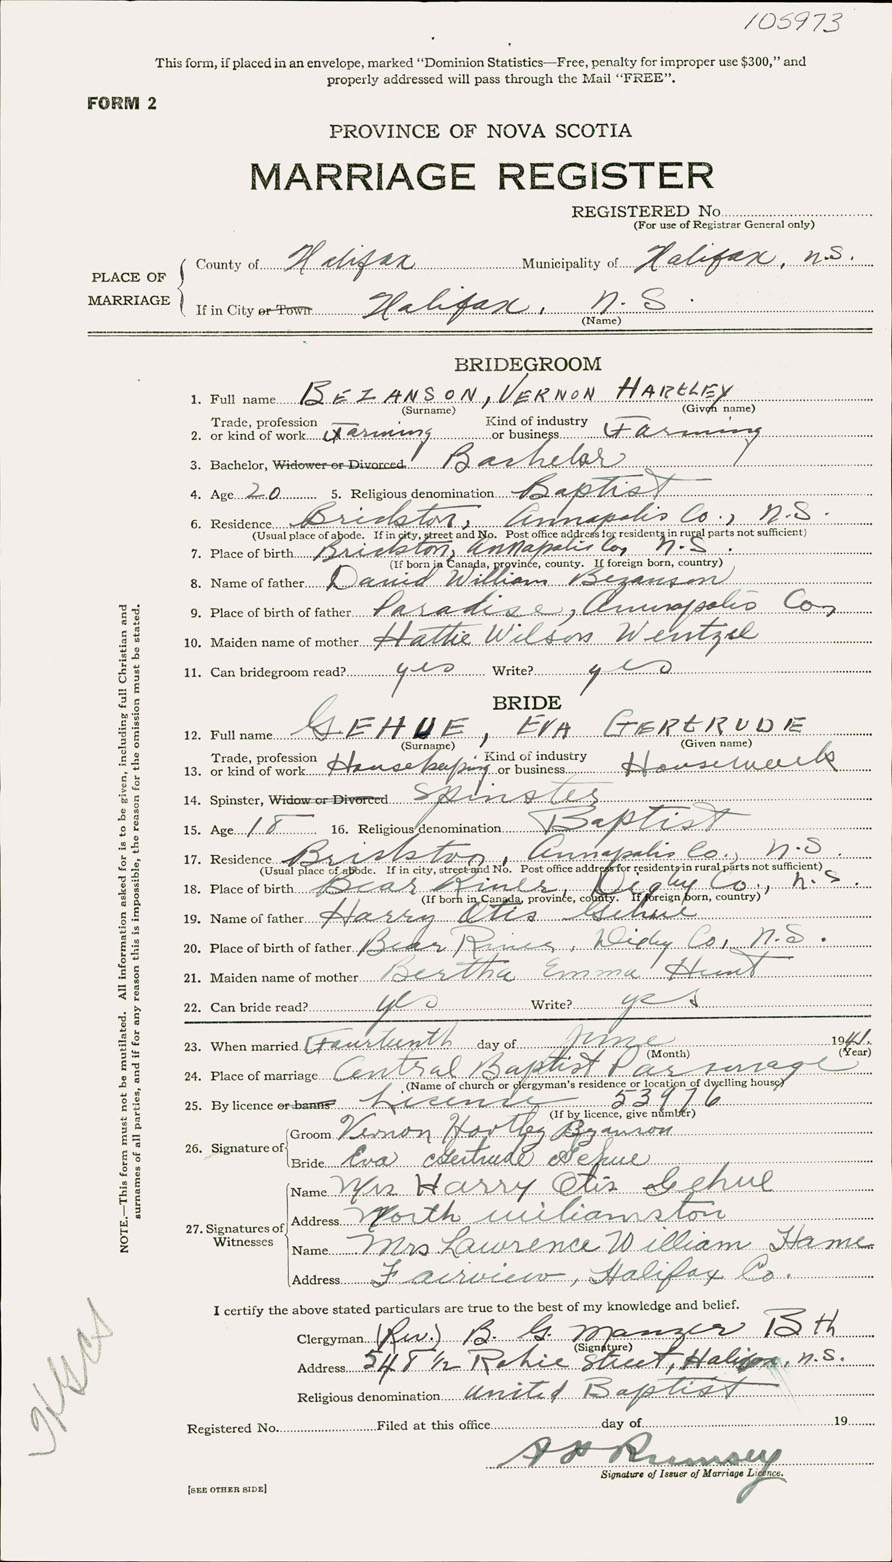 105973
This form, if placed in an envelope, marked "Dominion Statistics—Free, penalty for improper use $300," and
properly addressed will pass through the Mail "FREE".
FORM 2
PROVINCE OF NOVA SCOTIA
MARRIAGE REGISTER
REGISTERED No.
(For use of Registrar General only)
PLACE OF MARRIAGE
County of Halifax Municipality of Halifax, N.S.
If in City or Town Halifax, N.S.
(Name)
BRIDEGROOM
1. Full name BEZANSON, VERNON HARTLEY
(Surname) (Given name)
2. Trade, profession or kind of work Farming Kind of industry or business Farming
3. Bachelor, Widower or Divorced Bachelor
4. Age 20 5. Religious denomination Baptist
6. Residence Brickton, Annapolis Co., N.S.
(Usual place of abode. If in city, street and No. Post office address for residents in rural parts not sufficient)
7. Place of birth Brickton, Annapolis Co, N.S.
(If born in Canada, province, county. If foreign born, country)
8. Name of father David William Bezanson
9. Place of birth of father Paradise, Annapolis Co,
10. Maiden name of mother Hattie Wilson Wentzel
11. Can bridegroom read? yes Write? yes
BRIDE
12. Full name GEHUE, EVA GERTRUDE
(Surname) (Given name)
13. Trade, profession or kind of work Housekeeping Kind of industry or business Housework
14. Spinster, Widow or Divorced Spinster
15. Age 18 16. Religious denomination Baptist
17. Residence Brickton, Annapolis Co., N.S.
(Usual place of abode. If in city, street and No. Post office address for residents in rural parts not sufficient)
18. Place of birth Bear River, Digby Co., N.S.
(If born in Canada, province, county. If foreign born, country)
19. Name of father Harry Otis Gehue
20. Place of birth of father Bear River, Digby Co, N.S.
21. Maiden name of mother Bertha Emma Hunt
22. Can bride read? yes Write? yes
23. When married Fourteenth day of June 1941.
(Month) (Year)
24. Place of marriage Central Baptist Parsonage
(Name of church or clergyman's residence or location of dwelling house)
25. By licence or banns License 53976
(If by licence, give number)
26. Signature of
Groom Vernon Hartley Bezanson
Bride Eva Gertrude Gehue
27. Signatures of Witnesses
Name Mrs Harry Otis Gehue
Address North Williamston
Name Mrs Lawrence William Hame
Address Fairview, Halifax Co.
I certify the above stated particulars are true to the best of my knowledge and belief.
Clergyman (Rev.) B. G. Manzer Bth
(Signature)
Address 548 1/2 Robie Street, Halifax, N.S.
Religious denomination United Baptist
Registered No. Filed at this office day of 19
Rumsey
Signature of Issuer of Marriage Licence.
[SEE OTHER SIDE]
NOTE.—This form must not be mutilated. All information asked for is to be given, including full Christian and
surnames of all parties, and if for any reason this is impossible, the reason for the omission must be stated.